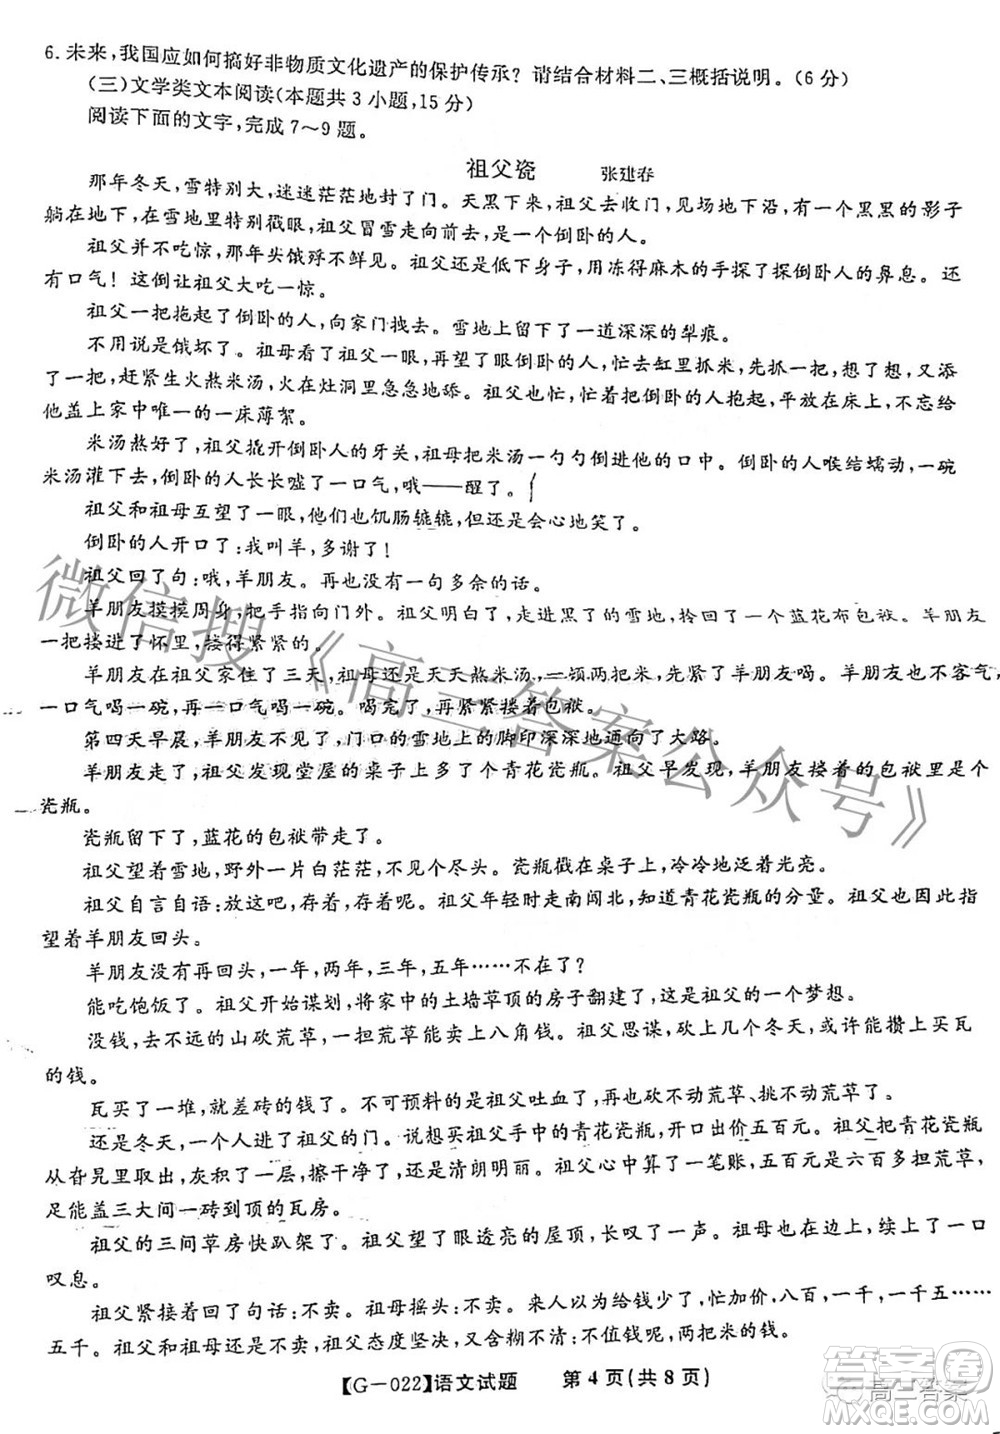 6.未来,我国应如何搞好非物质文化遗产的保护传承?请结合材料二、三概括说明。(6分)
(三)文学类文本阅读(本题共3小题,15分)
阅读下面的文字,完成7～9题。
祖父瓷 张建春
那年冬天,雪特别大,迷迷茫茫地封了门。天黑下来,祖父去收门,见场地下沿,有一个黑黑的影子
躺在地下,在雪地里特别戳眼,祖父冒雪走向前去,是一个倒卧的人。
祖父并不吃惊,那年头饿殍不鲜见。祖父还是低下身子,用冻得麻木的手探了探倒卧人的鼻息。还
有口气!这倒让祖父大吃一惊。
祖父一把拖起了倒卧的人,向家门拽去。雪地上留下了一道深深的犁痕。
不用说是饿坏了。祖母看了祖父一眼,再望了眼倒卧的人,忙去缸里抓米,先抓一把,又添
了一把,赶紧生火熬米汤,火在灶洞里急急地舔。祖父也忙,忙着把倒卧的人抱起,平放在床上,将
他盖上家中唯一的一床薄絮。
米汤熬好了,祖父撬开倒卧人的牙关,祖母把米汤一勺勺倒进他的口中。倒卧的人喉结蠕动,一碗
米汤灌下去,倒卧的人长长嘘了一口气——醒了。
祖父和祖母互望了一眼,他们也饥肠辘辘,但还是会心地笑了。
倒卧的人开口了:我叫羊,多谢了!
祖父回了句:哦,羊朋友。也是一个没有多余的话。
羊朋友摸摸周身,把手指向门外。祖父明白了,走进黑了的雪地,拎回了一个蓝花布包袱。羊朋友
一把搂进了怀里,搂得紧紧的。
羊朋友在祖父家待了三天,祖母还是天天熬米汤,一顿两把米,先紧了羊朋友喝。羊朋友也不客气,
一口气喝一碗,再一口气喝一碗。喝完了,再紧紧搂着包袱。
第四天早晨,羊朋友不见了,门口的雪地上的脚印深深地通向了大路。
羊朋友走了,祖父发现堂屋的桌子上多了个青花瓷瓶。祖父早发现,羊朋友搂着的包袱里是个
瓷瓶。
瓷瓶留下了,蓝花的包袱带走了。
祖父望着雪地,野外一片白茫茫,没个尽头。瓷瓶戳在桌子上,冷冷地泛着光亮。
祖父自言自语:放这吧,存着,存着呢。祖父年轻时走南闯北,知道青花瓷瓶的分量。祖父指
望着羊朋友回头。
羊朋友没有再回头,一年,两年,三年,五年……不在了?
能吃饱饭了。祖父开始谋划,将家中的土墙草顶的房子翻建了,这是祖父的一个梦想。
没钱,去不远的山砍荒草,一担荒草能卖上八角钱。祖父思谋,砍上几个冬天,或许能攒上买瓦
的钱。
瓦买了一堆,就差砖的钱了。不可预料的是祖父吐血了,砍不动荒草、挑不动荒草了。
还是冬天,一个人进了祖父的门。说想买祖父手中的青花瓷瓶,开口出价五百元。祖父把青花瓷瓶
从旮旯里取出,灰积了一层,擦干净了,还是清朗明丽。祖父心中算了一笔账,五百元是六百多担荒草,
足能盖三大间一砖到顶的瓦房。
祖父的三间草房快趴架了。祖父望了眼透亮的屋顶,重重地咳了一声。祖母也在边上,续上了一口
叹息。
祖父紧接着回了句话:不卖。祖母摇头:不卖。来人以为给钱少了,忙加价,一千,一千五……
五千。祖父和祖母还是不卖。祖父态度坚决,又含糊不清:不值钱呢,两把米的钱。
【G—022】语文试题 第4页(共8页)
微信搜《高三答案公众号》
答案圈
MXQE.COM
高三答案